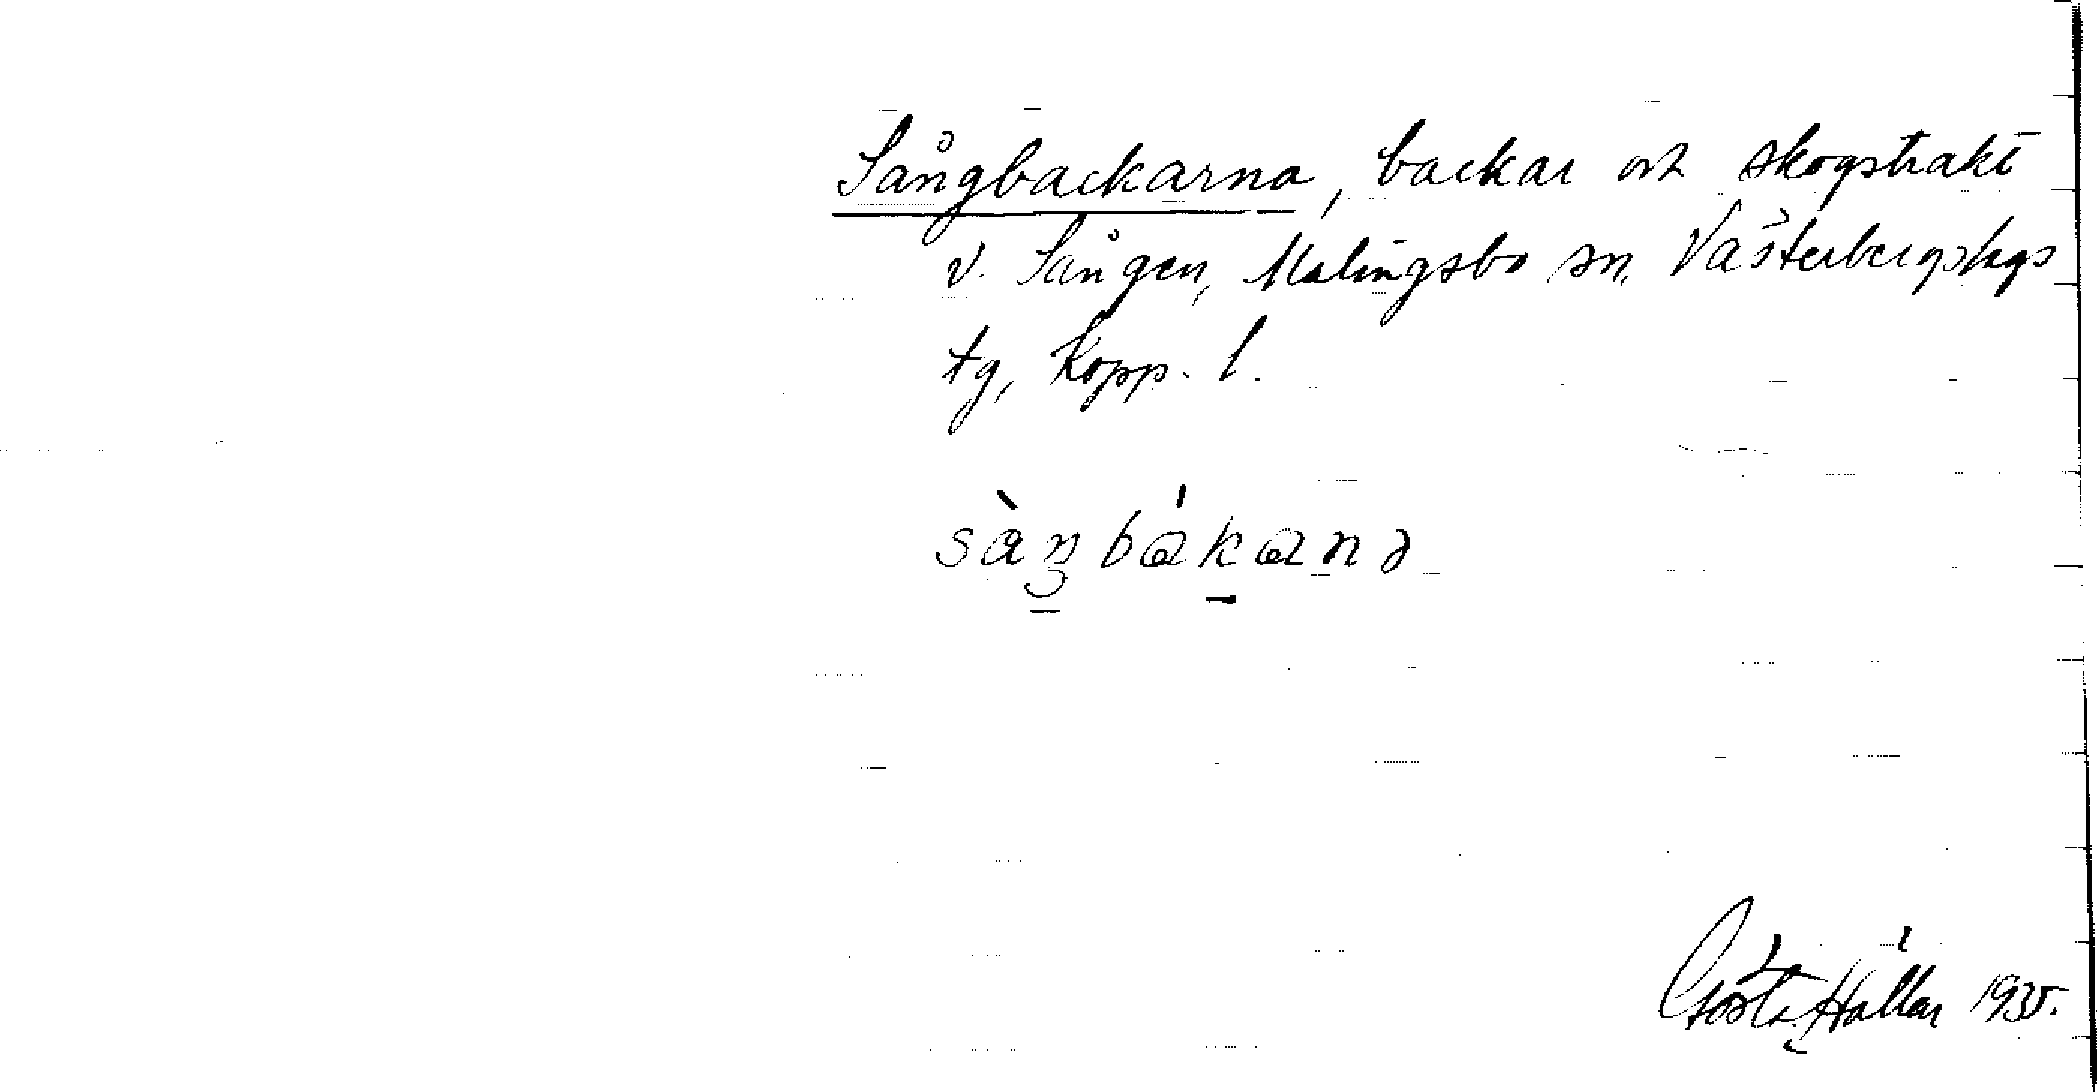 Sångbackarna, backar och skogstrakt
v. Sången, Malingsbo sn, Västerbergslags
tg, Kopp. l.
sàŋbákanə
Gösta Hållan 1935.